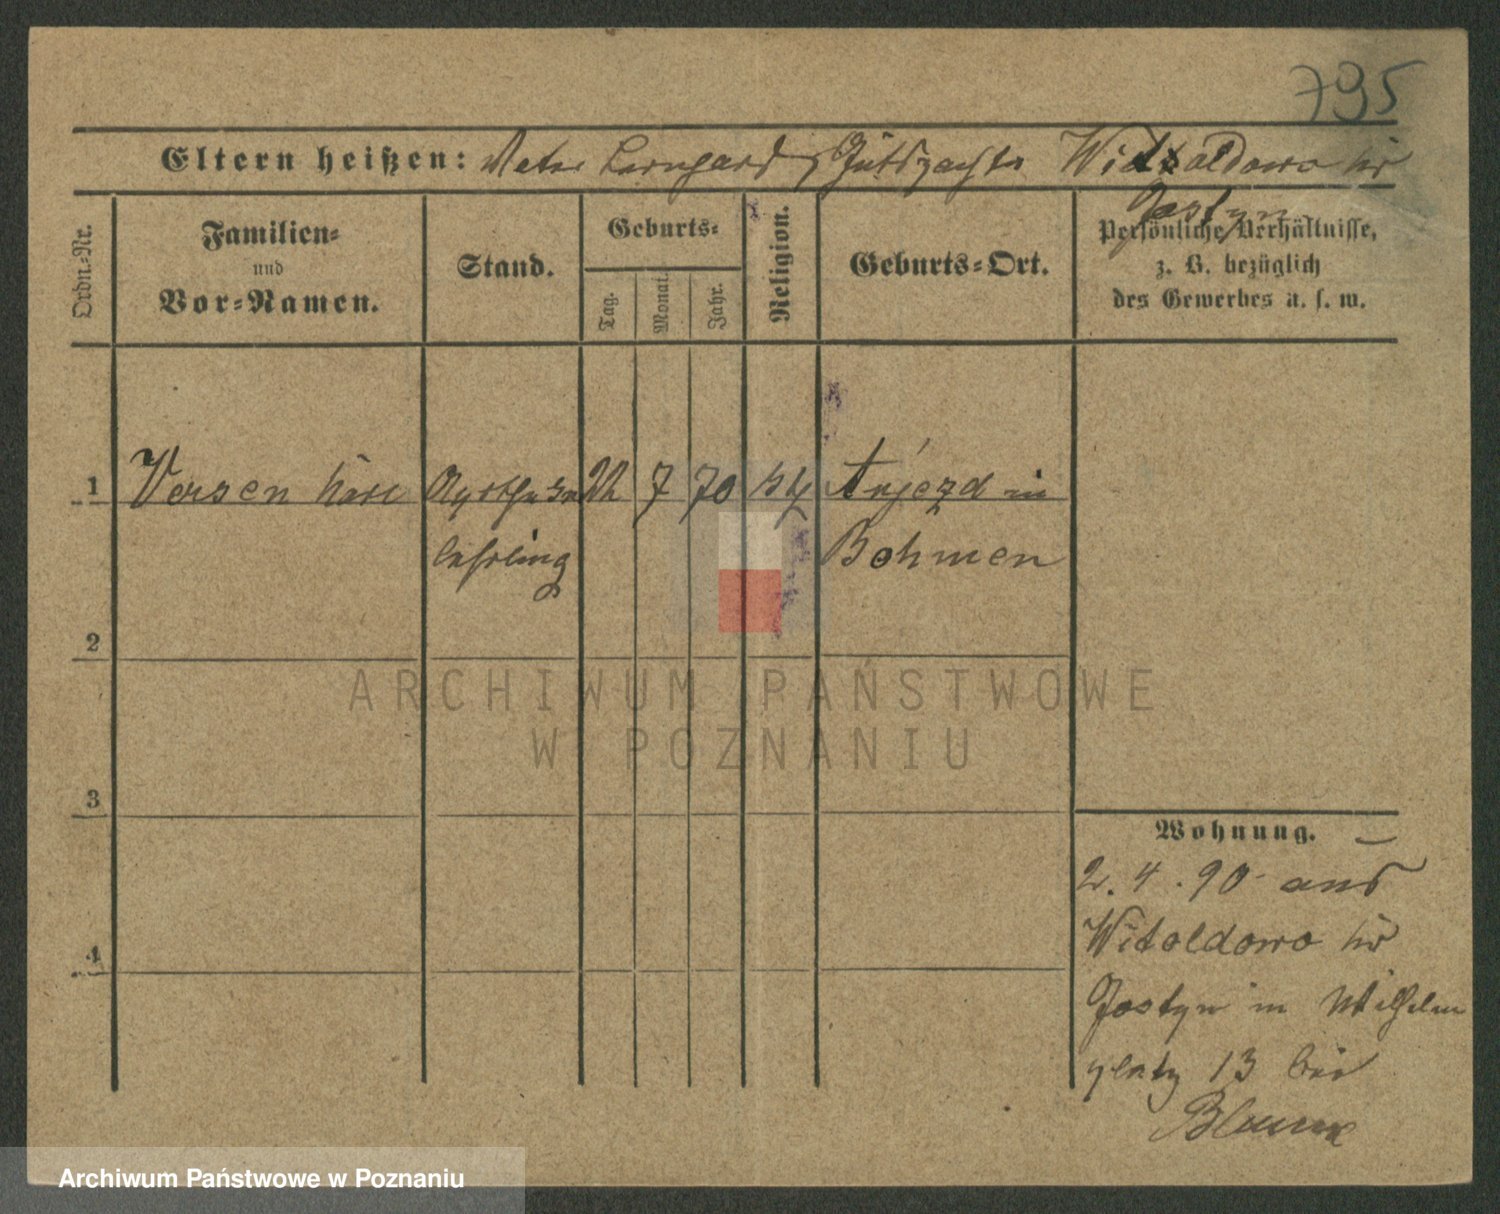 795
Eltern heißen: Vater Bernhard, Gutspachter Witoldowo Kr
Gostyn
Ordn.-Nr.
Familien-
und
Vor-Namen.
Stand.
Geburts-
Tag.
Monat.
Jahr.
Religion.
Geburts-Ort.
Persönliche Verhältnisse,
z. B. bezüglich
des Gewerbes u. s. w.
1 Versen 22 7 70 Aujezd in
lehrling Bohmen
2
3
4
Wohnung.
2. 4. 90 aus
Witoldowo Kr
Gostyn in Wilhelm
platz 13 bei
ARCHIWUM PAŃSTWOWE
W POZNANIU
Archiwum Państwowe w Poznaniu